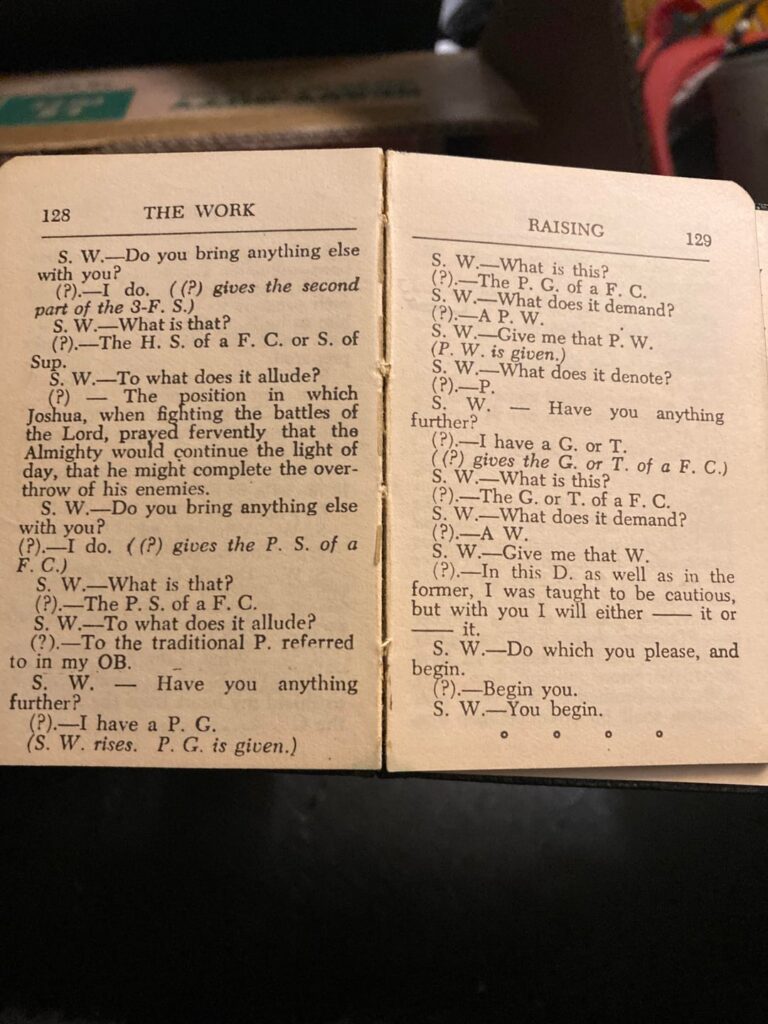 128 THE WORK
S. W.—Do you bring anything else
with you?
(?).—I do. ((?) gives the second
part of the 3-F. S.)
S. W.—What is that?
(?).—The H. S. of a F. C. or S. of
Sup.
S. W.—To what does it allude?
(?) — The position in which
Joshua, when fighting the battles of
the Lord, prayed fervently that the
Almighty would continue the light of
day, that he might complete the over-
throw of his enemies.
S. W.—Do you bring anything else
with you?
(?).—I do. ((?) gives the P. S. of a
F. C.)
S. W.—What is that?
(?).—The P. S. of a F. C.
S. W.—To what does it allude?
(?).—To the traditional P. referred
to in my OB.
S. W. — Have you anything
further?
(?).—I have a P. G.
(S. W. rises. P. G. is given.)
RAISING 129
S. W.—What is this?
(?).—The P. G. of a F. C.
S. W.—What does it demand?
(?).—A P. W.
S. W.—Give me that P. W.
(P. W. is given.)
S. W.—What does it denote?
(?).—P.
S. W. — Have you anything
further?
(?).—I have a G. or T.
((?) gives the G. or T. of a F. C.)
S. W.—What is this?
(?).—The G. or T. of a F. C.
S. W.—What does it demand?
(?).—A W.
S. W.—Give me that W.
(?).—In this D. as well as in the
former, I was taught to be cautious,
but with you I will either —— it or
—— it.
S. W.—Do which you please, and
begin.
(?).—Begin you.
S. W.—You begin.